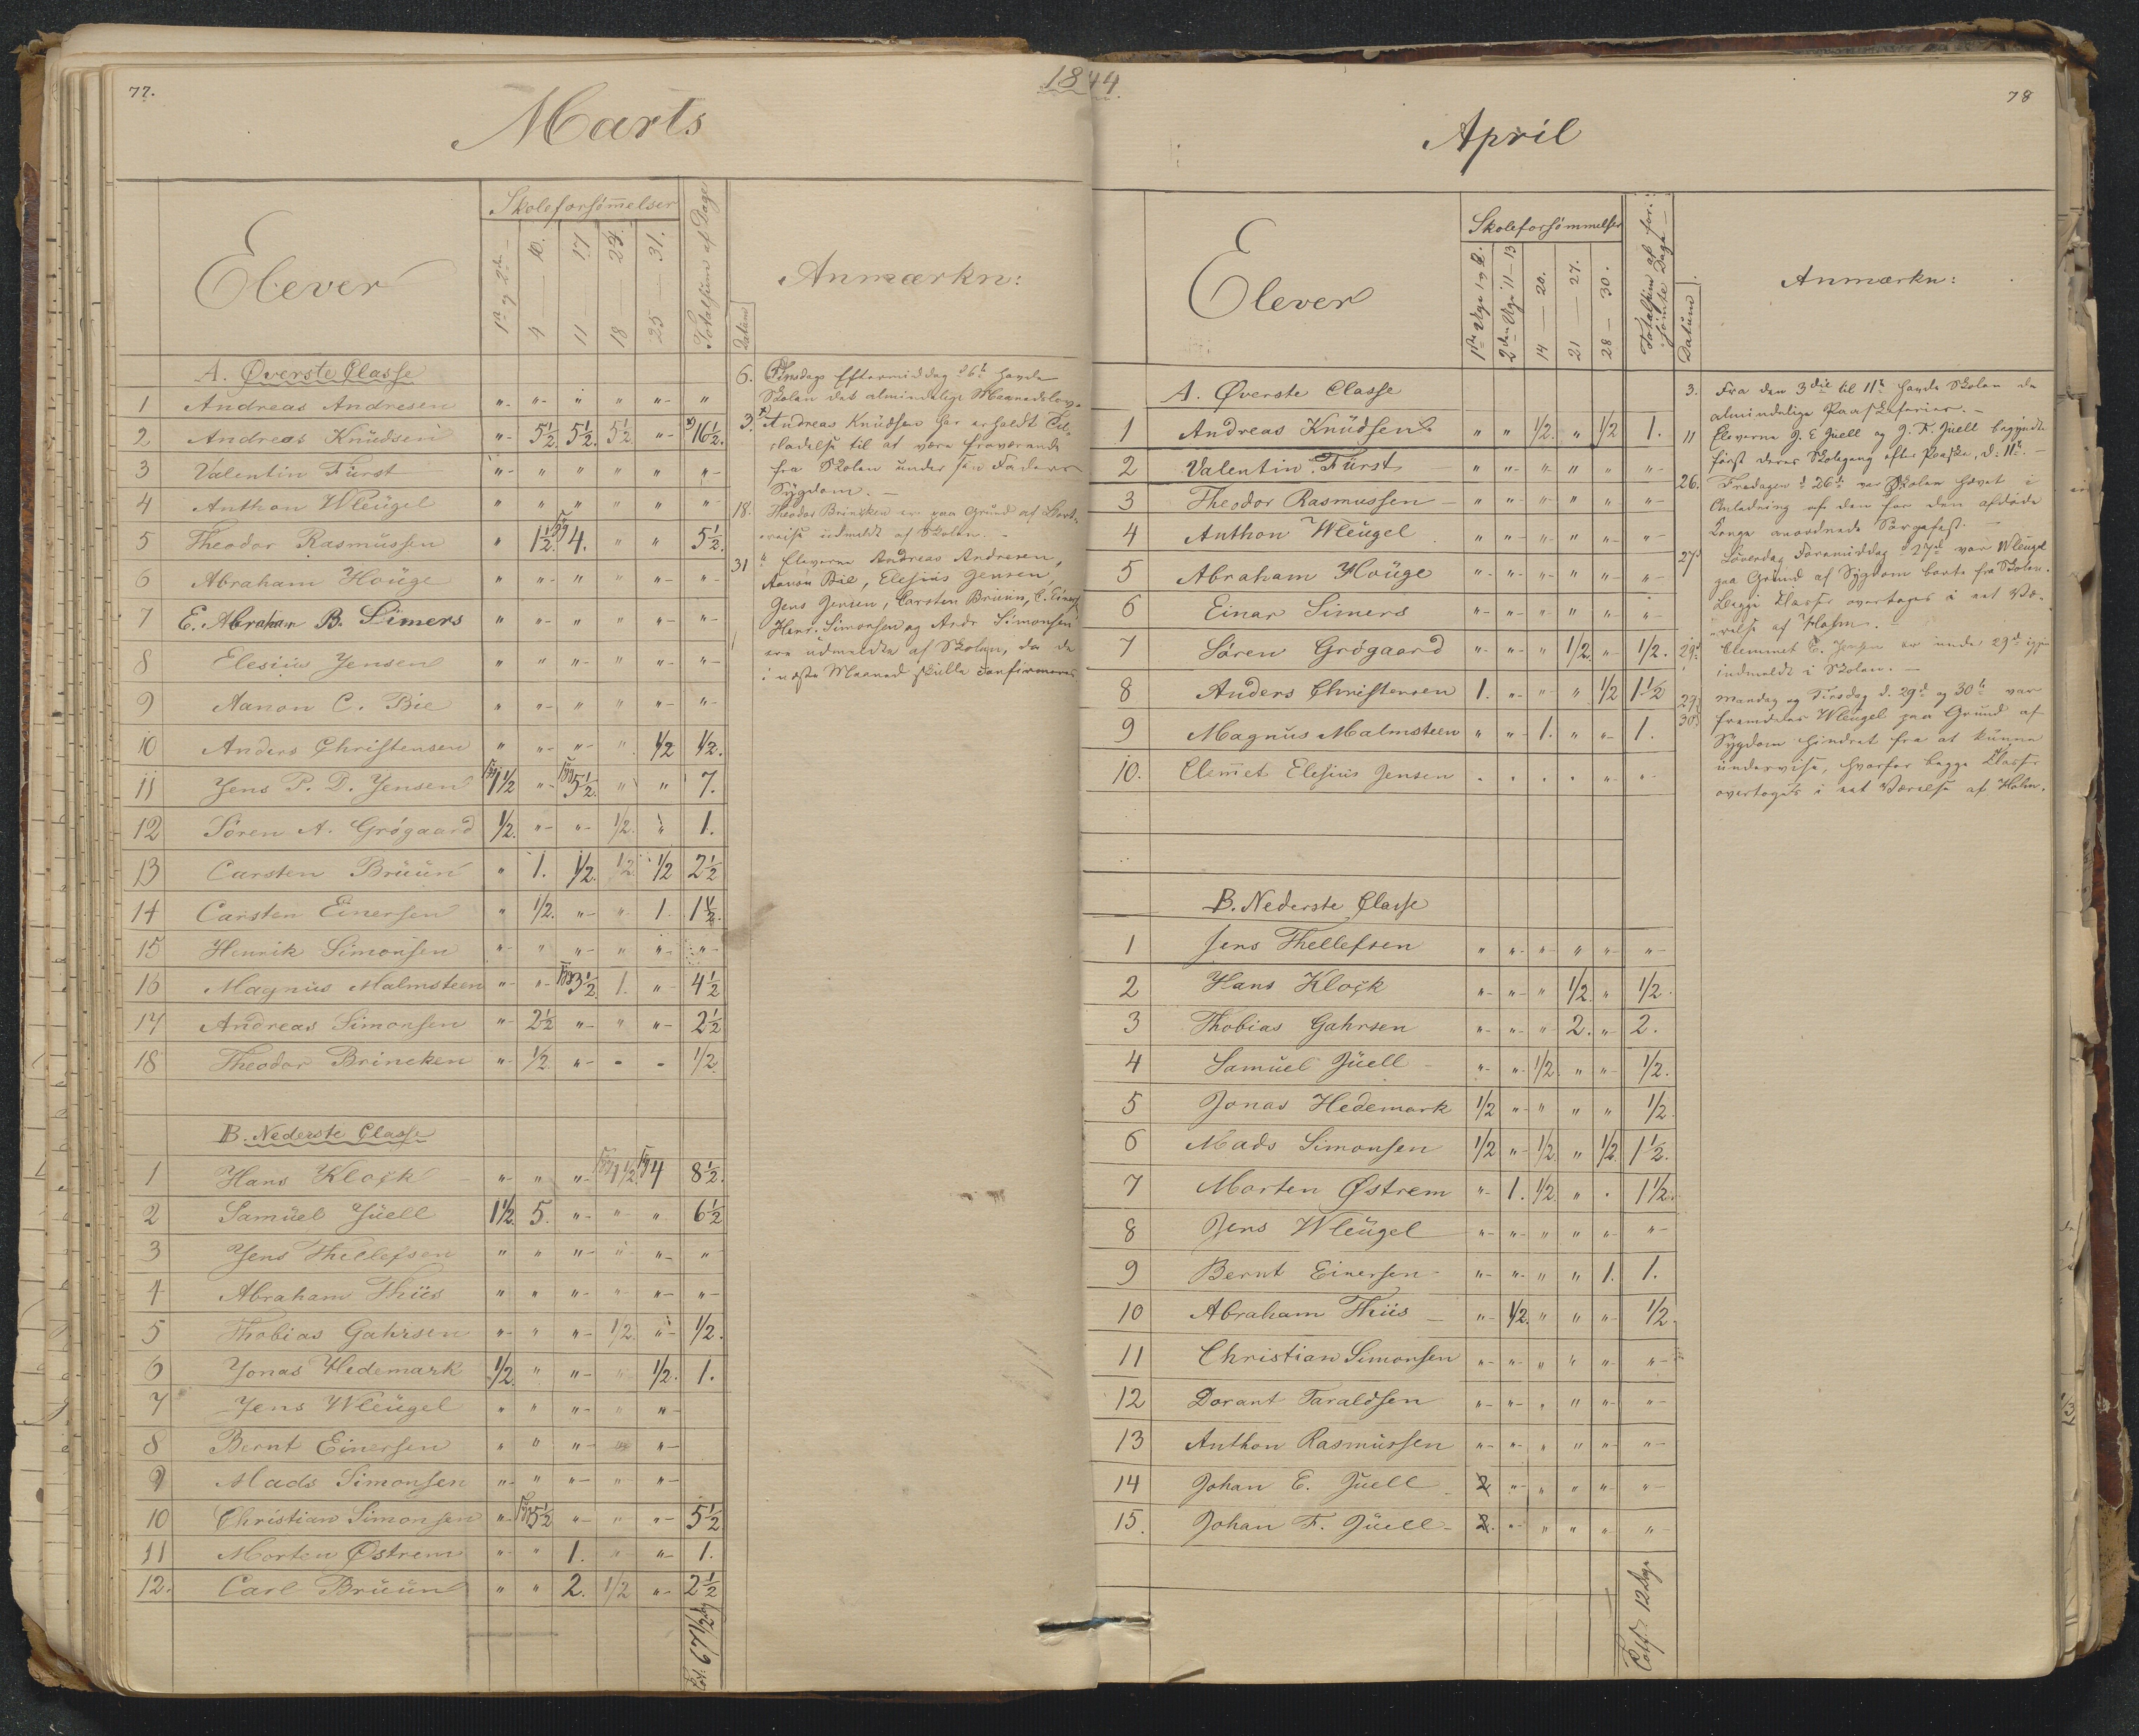 77.
1844.
Marts
Elever
Skoleforsømmelser
1ste og 2den
4 — 10.
11 — 17
18 — 24.
25 — 31.
Totalsum af Dage
Datum
Anmærkn:
A. Øverste Classe
1 Andreas Andresen " " " " " "
2 Andreas Knudsen " 5½ 5½. 5½ " 16½.
3 Valentin Fürst " " " " " "
4 Anthon Wleügel " " " " " "
5 Theodor Rasmussen " 1½. 4. " " 5½.
6 Abraham Houge " " " " " "
7 E. Abraham B. Simers " " " " " "
8 Elesius Jensen " " " " " "
9 Aanon C. Bie " " " " " "
10 Anders Christensen " " " " ½ ½.
11 Jens P. D. Jensen 1½ " 5½. " " 7.
12 Søren A. Grøgaard ½. " " ½. " 1.
13 Carsten Bruun " 1. ½. ½. ½ 2½
14 Carsten Einersen " ½. " " 1. 1½.
15 Henrik Simonsen " " " " " "
16 Magnus Malmsteen " " 3½. 1. " 4½
17 Andreas Simonsen " 2½ " " " 2½
18 Theodor Brincken " ½ " - - ½
B. Nederste Classe
1 Hans Klock " " " 1½. 4 8½.
2 Samuel Juell 1½. 5. " " " 6½
3 Jens Thellefsen " " " " " "
4 Abraham Thiis " " " " " "
5 Thobias Gahrsen " " " ½. " ½.
6 Jonas Hedemark ½. " " " ½. 1.
7 Jens Wleügel " " " " "
8 Bernt Einersen " " " " "
9 Mads Simonsen " " " " "
10 Christian Simonsen " 5½ " " " 5½
11 Morten Østrem " " 1. " " 1.
12. Carl Bruun " " 2. ½ " 2½
Tot: 67½ Dag
6. Tirsdags Eftermiddag d 6te havde
Skolen det almindelige Maanedslov.
3. Andreas Knudsen har erholdt Til-
ladelse til at være fraværende
fra Skolen under sin Faders
Sygdom. —
18. Theodor Brincken er paa Grund af Bort-
reise udmeldt af Skolen. —
31 Eleverne Andreas Andresen,
Aanon Bie, Elesius Jensen,
Jens Jensen, Carsten Bruun, C. Einers.
Henr. Simonsen og Andr. Simonsen
ere udmeldte af Skolen, da de
i næste Maaned skulle confirmeres
78
April
Elever
Skoleforsømmelser
1ste Uge 1 og 2.
2den Uge 11—13
14 — 20.
21 — 27.
28 — 30.
Totalsum af for-
sømte Dage
Datum
Anmærkn:
A. Øverste Classe
1 Andreas Knudsen " " ½. " ½ 1.
2 Valentin Fürst " " " " " "
3 Theodor Rasmussen " " " " " "
4 Anthon Wleügel " " " " " "
5 Abraham Houge " " " " " "
6 Einar Simers " " " " " "
7 Søren Grøgaard " " " ½. " ½.
8 Anders Christensen 1. " " " ½ 1½
9 Magnus Malmsteen " " 1. " " 1.
10. Clemet Elesius Jensen " " " " " "
B. Nederste Classe
1 Jens Thellefsen " " " " " "
2 Hans Klock " " " ½. " ½.
3 Thobias Gahrsen " " " 2. " 2.
4 Samuel Juell " " ½. " " ½.
5 Jonas Hedemark ½ " " " " ½.
6 Mads Simonsen ½ " ½. " ½. 1½.
7 Morten Østrem " 1. ½. " " 1½.
8 Jens Wleügel " " " " " "
9 Bernt Einersen " " " " 1. 1.
10 Abraham Thiis " ½. " " " ½.
11 Christian Simonsen " " " " " "
12 Dorant Taraldsen " " " " " "
13 Anthon Rasmussen " " " " " "
14 Johan E. Juell 2 " " " " "
15. Johan F. Juell 2. " " " " "
12 Dage
3. Fra den 3die til 11te havde Skolen de
almindelige Paaskeferier. —
11 Eleverne J. E Juell og J. F. Juell begyndte
først deres Skolegang efter Paaske, d: 11te. —
26. Fredagen d 26de var Skolen hævet i
Anledning af den for den afdøde
Konge anordnede Sørgefest. —
27d Løverdag Formiddag d 27d var Wleügel
paa Grund af Sygdom borte fra Skolen.
Begge Klasser overtoges i eet Væ-
relse af Holm. —
29d Clemmet E. Jensen er under 29d igjen
indmeldt i Skolen. —
29. Mandag og Tirsdag d. 29d og 30te var
30d fremdeles Wleügel paa Grund af
Sygdom hindret fra at kunne
undervise, hvorfor begge Klasser
overtoges i eet Værelse af Holm.